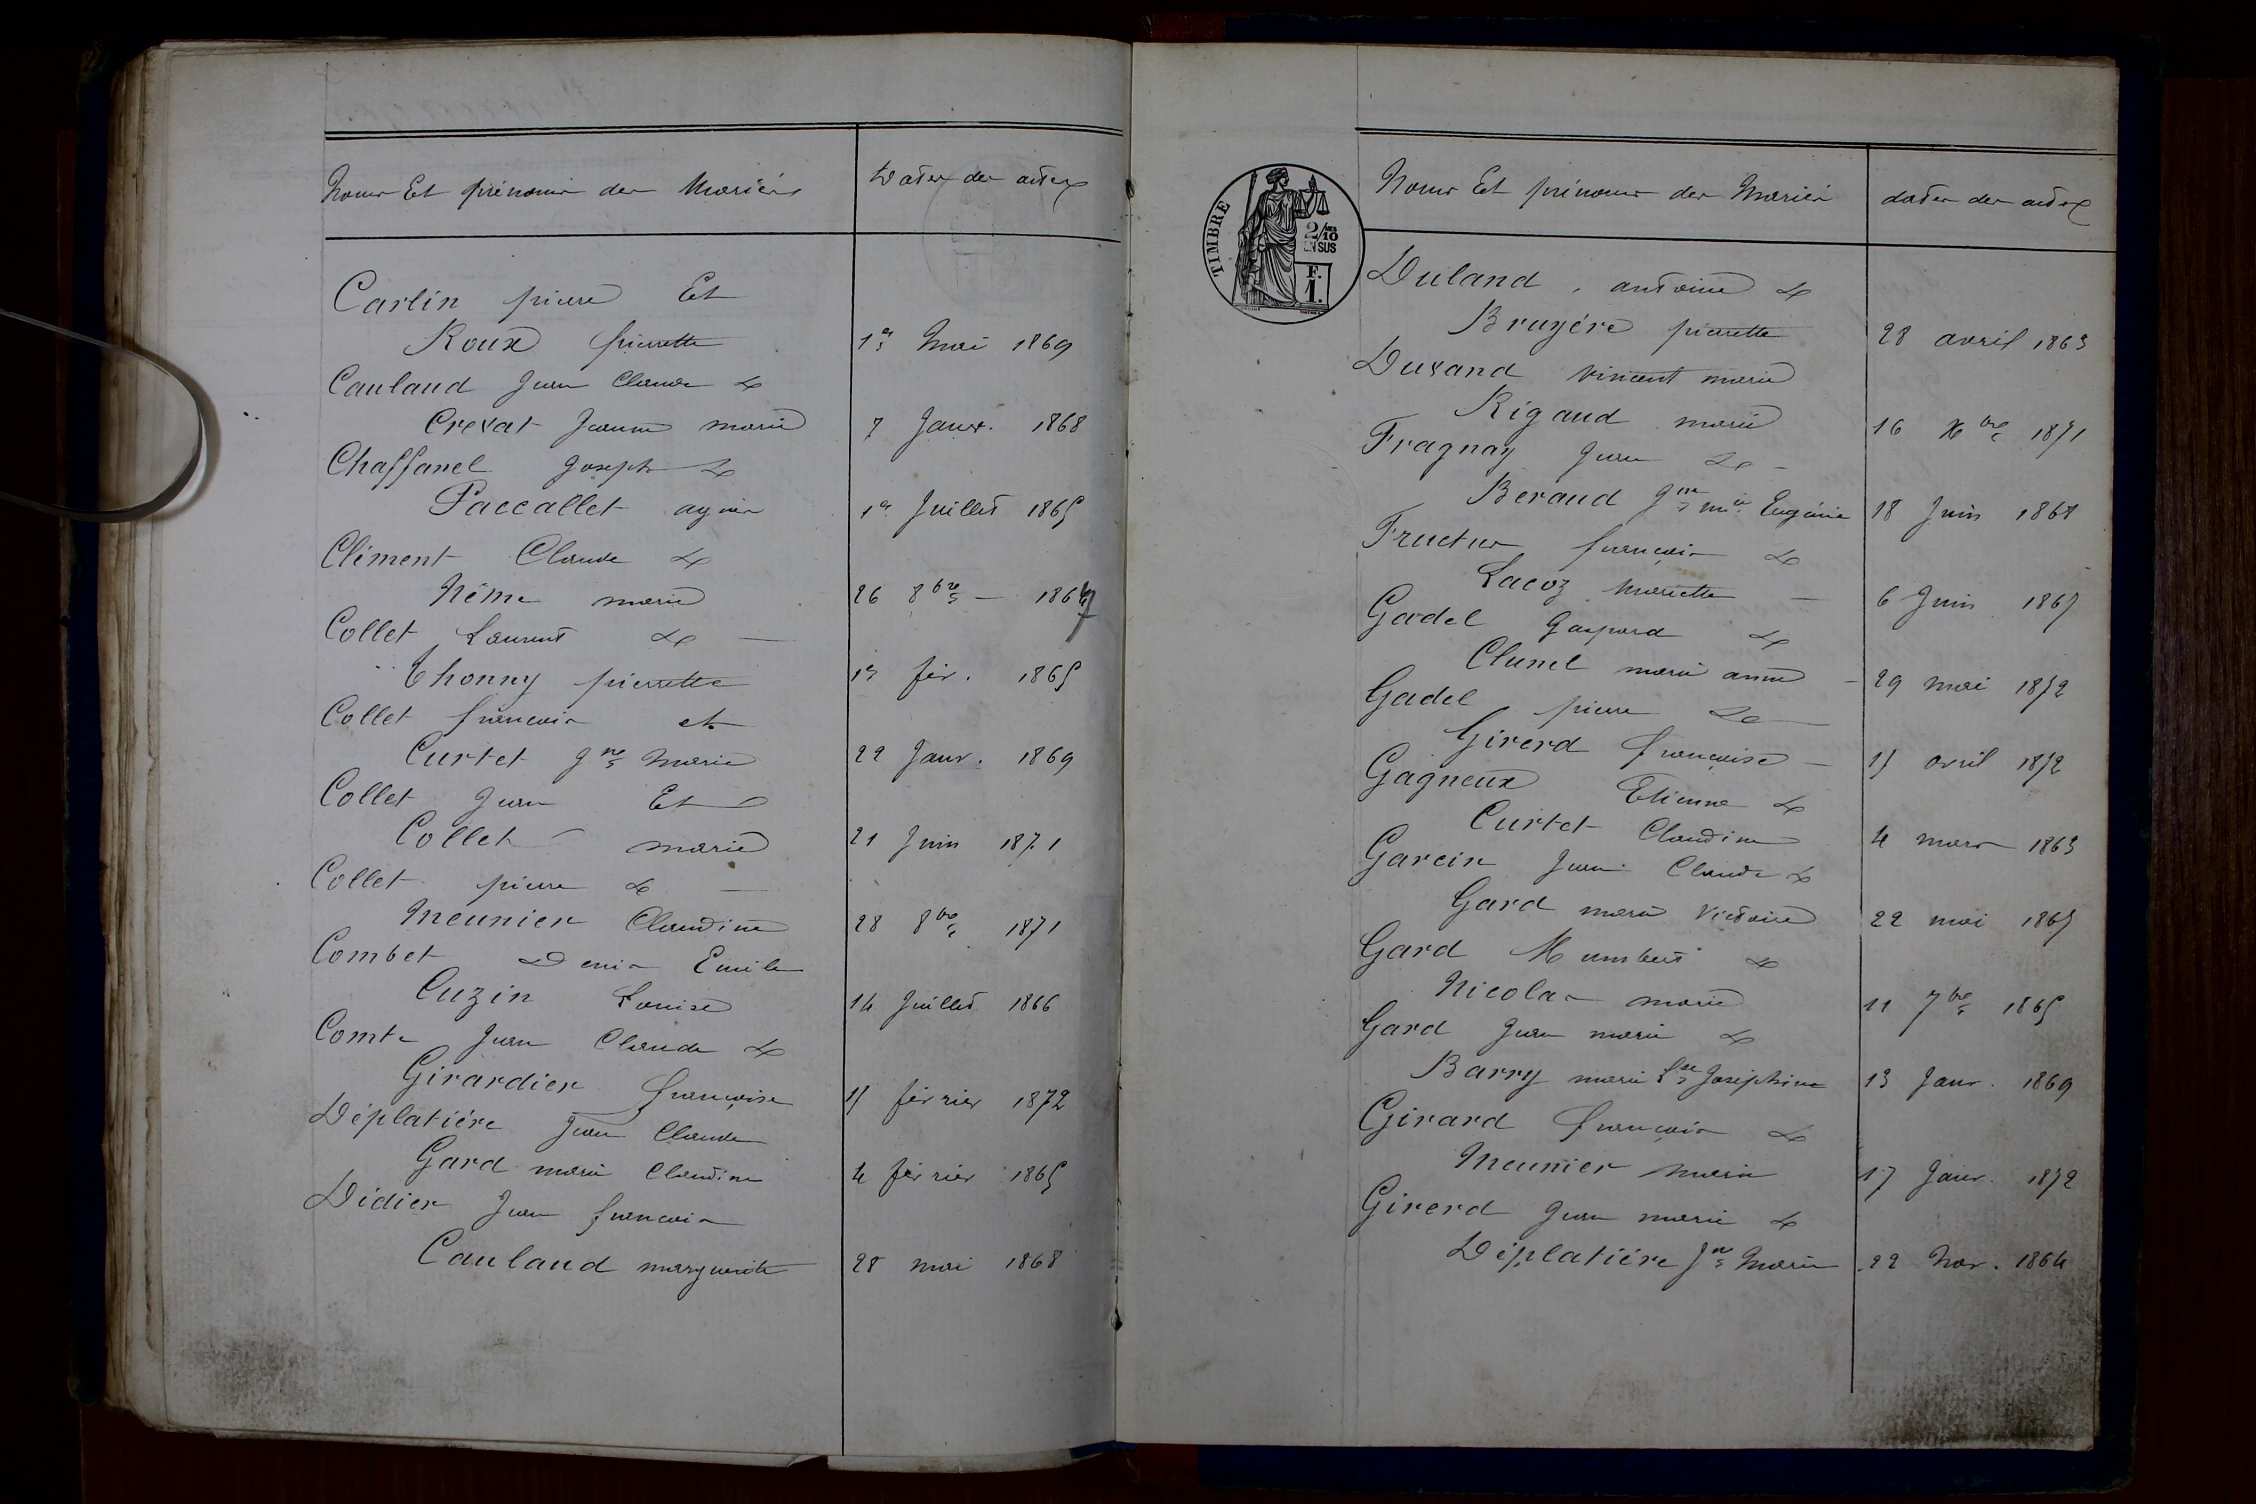 Noms Et prénoms des Mariés Dates des actes
Carlin pierre Et
Roux pierrette 1er Mai 1869
Cauland Jean Claude &
Crevat Jeanne marie 7 Janv. 1868
Chaffanel Joseph &
Paccallet agnès 1er Juillet 1865
Climent Claude &
Nême marie 26 8bre 1867
Collet Laurent &
Thonny pierrette 13 fév. 1865
Collet françois et
Curtet Jne Marie 22 Janv. 1869
Collet Jean Et
Collet marie 21 Juin 1871
Collet pierre &
Meunier Claudine 28 8bre 1871
Combet Denis Emile
Cuzin Louise 14 Juillet 1866
Comte Jean Claude &
Girardier françoise 15 février 1872
Déplatière Jean Claude
Gard marie Claudine 4 février 1865
Didier Jean françois
Cauland marguerite 28 mai 1868
TIMBRE
2/10
EN SUS
F.
1.
Noms Et prénoms des Mariés dates des actes
Duland, antoine &
Bruyére pierrette 28 avril 1863
Durand vincent marie
Rigaud marie 16 Xbre 1871
Fragnay Jean &
Beraud Jne mie Eugénie 18 Juin 1868
Fructus françois &
Lacoz Mariette 6 Juin 1867
Gadel Gaspard &
Clunel marie anne 29 mai 1872
Gadel pierre &
Girerd françoise 15 avril 1872
Gagneux Etienne &
Curtet Claudine 4 mars 1863
Garcin Jean Claude &
Gard marie Victoire 22 mai 1865
Gard Humbert &
Nicolas marie 11 7bre 1865
Gard Jean marie &
Barry marie Lse Joséphine 13 Janv. 1869
Girard françois &
Meunier marie 17 Janv. 1872
Girerd Jean marie &
Déplatiére Jne Marie 22 Nov. 1864